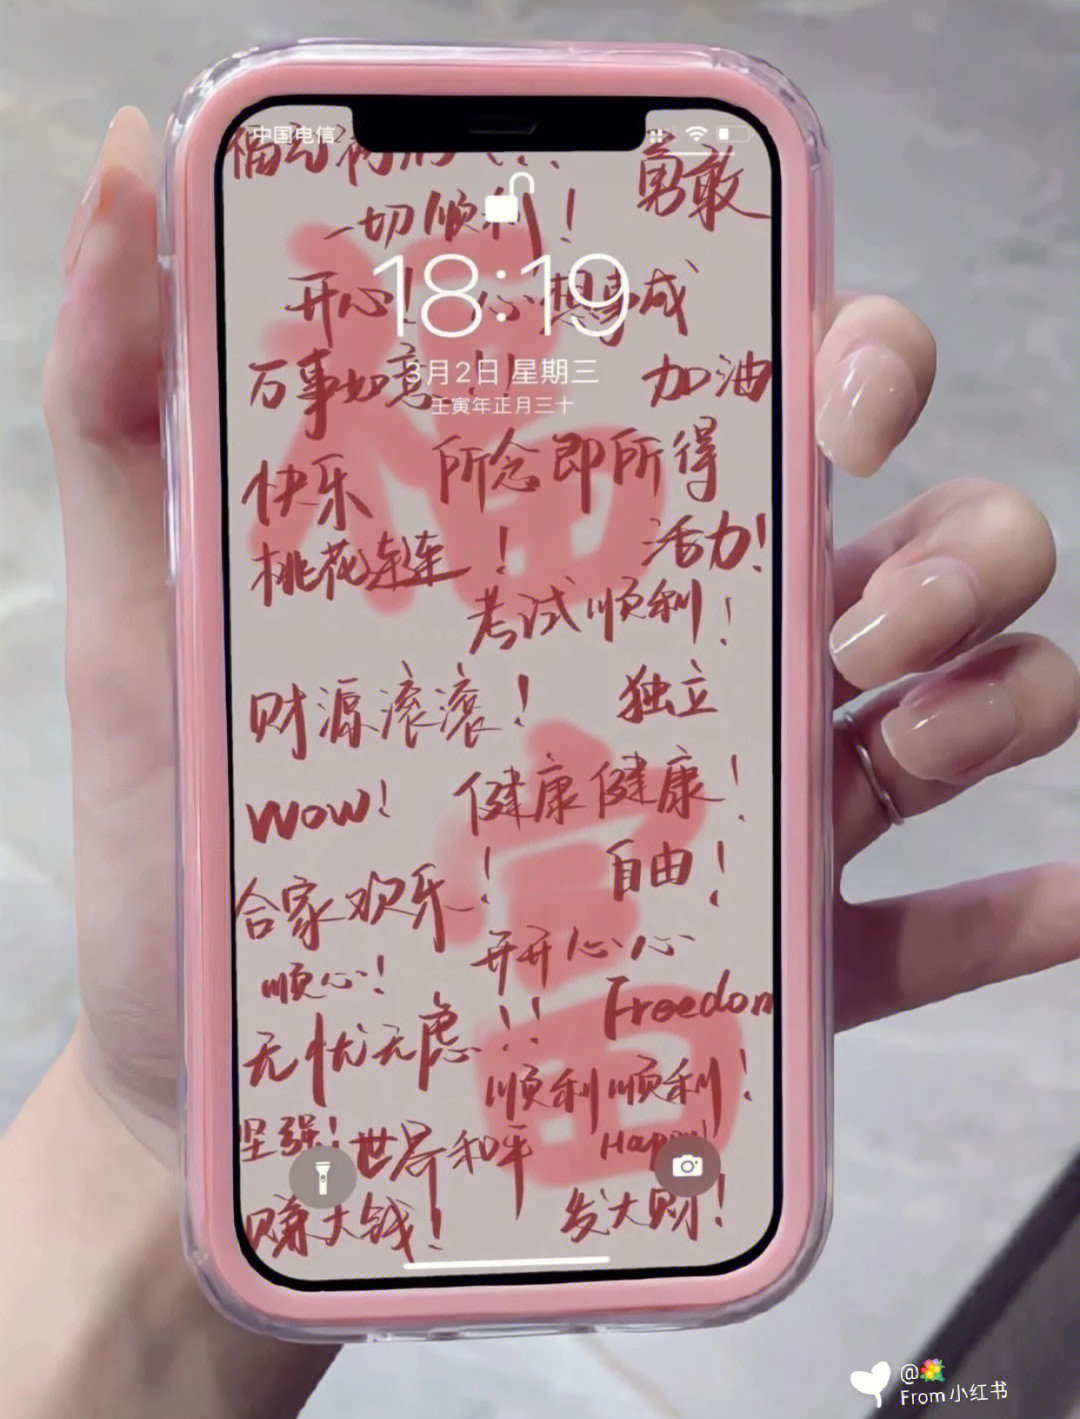 中国电信
勇敢
一切顺利！
18:19
开心！心想事成
3月2日 星期三
万事如意！！
加油
壬寅年正月三十
快乐
所念即所得
桃花连连！
活力！
考试顺利！
财源滚滚！
独立
Wow！
健康健康！
合家欢乐！
自由！
开开心心
顺心！
Freedom
无忧无虑！！
顺利顺利！
坚强！
世界和平
Happy!
赚大钱！
发大财！
福
富
@
From 小红书